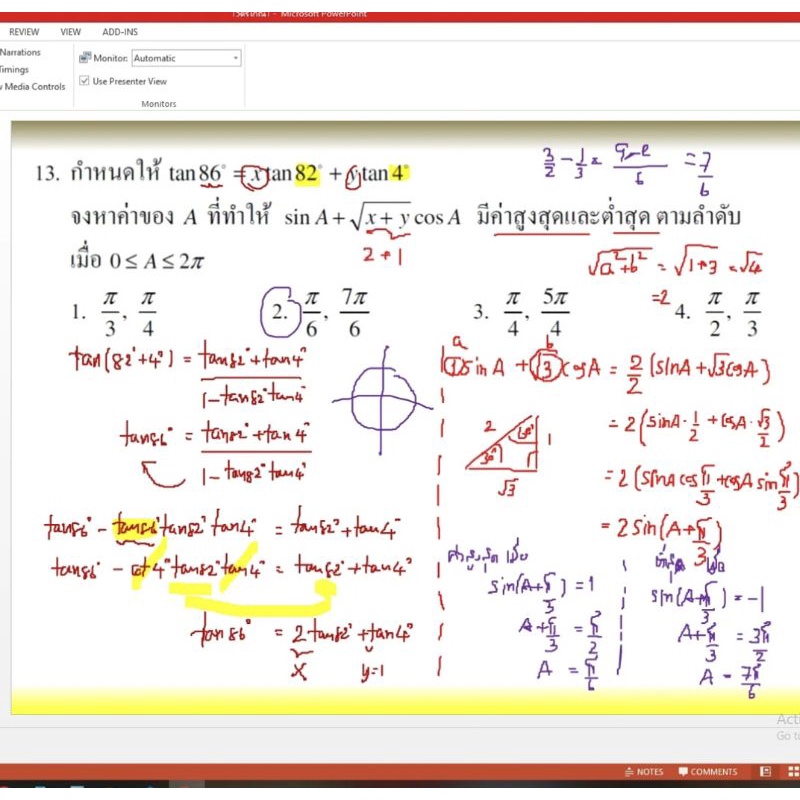 Microsoft PowerPoint
REVIEW VIEW ADD-INS
Narrations
Timings
Media Controls
Monitor: Automatic
Use Presenter View
Monitors
13. กำหนดให้ tan 86° = x tan 82° + y tan 4°
จงหาค่าของ A ที่ทำให้ sin A + √(x + y) cos A มีค่าสูงสุดและต่ำสุด ตามลำดับ
เมื่อ 0 ≤ A ≤ 2π
3/2 - 1/3 = (9-2)/6 = 7/6
2 + 1
√(a²+b²) = √(1+3) = √4
=2
1. π/3, π/4 2. π/6, 7π/6 3. π/4, 5π/4 4. π/2, π/3
tan(82°+4°) = (tan82°+tan4°)/(1-tan82°tan4°)
tan86° = (tan82°+tan4°)/(1-tan82°tan4°)
tan86° - tan86°tan82°tan4° = tan82°+tan4°
tan86° - cot4°tan82°tan4° = tan82°+tan4°
tan86° = 2tan82°+tan4°
x y=1
a b
1sinA + √3cosA = 2/2 (sinA+√3cosA)
= 2(sinA·1/2 + cosA·√3/2)
2 60° 1
30°
√3
= 2(sinAcosπ/3 + cosAsinπ/3)
= 2sin(A+π/3)
sin(A+π/3) = 1
A+π/3 = π/2
A = π/6
sin(A+π/3) = -1
A+π/3 = 3π/2
A = 7π/6
Acti
Go to
NOTES COMMENTS